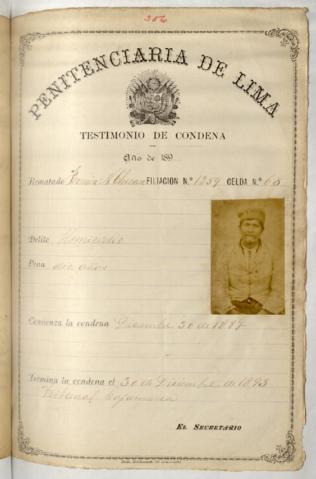 306
PENITENCIARIA DE LIMA
TESTIMONIO DE CONDENA
Año de 189
Rematado FILIACION N.º 1259 CELDA N.º 68
Delito Homicidio
Pena años
Comienza la condena Diciembre 30 de 1887
Termina la condena el 30 de Diciembre de 1893
Tribunal Cajamarca
EL SECRETARIO